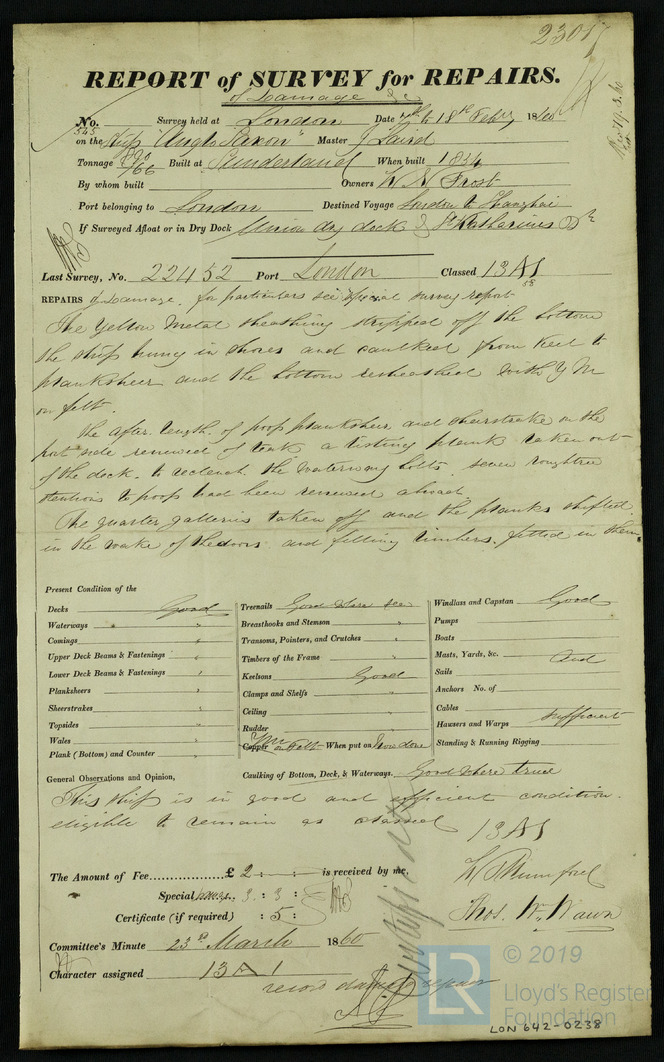 23017
REPORT of SURVEY for REPAIRS.
of Damage &c
No. 545 Survey held at London Date to 18th Feby 1860
on the Ship "Anglo Saxon" Master J Laird
Tonnage 820/66 Built at Sunderland When built 1834
By whom built Owners W Frost
Port belonging to London Destined Voyage London to Shanghai
If Surveyed Afloat or in Dry Dock Union dry dock & St Katharines Dk
Last Survey, No. 22452 Port London Classed 13 A1
58
REPAIRS of Damage. for particulars see special survey report
The Yellow Metal sheathing stripped off the bottom
the ship hung in shores and caulked from keel to
planksheer and the bottom resheathed with Y M
on felt.
The after length of poop planksheer and sheerstrake on the
port side renewed of teak a listing plank taken out
of the deck to reclench the waterway bolts. seven roughtree
stentions to poop had been renewed abroad
The quarter galleries taken off and the planks shifted
in the wake of the doors and filling timbers fitted in them.
Present Condition of the
Decks Good
Waterways "
Comings "
Upper Deck Beams & Fastenings "
Lower Deck Beams & Fastenings "
Planksheers "
Sheerstrakes "
Topsides "
Wales "
Plank (Bottom) and Counter "
Treenails Good where see
Breasthooks and Stemson "
Transoms, Pointers, and Crutches "
Timbers of the Frame "
Keelsons Good
Clamps and Shelfs "
Ceiling "
Rudder "
Copper YM on Felt When put on Now done
Windlass and Capstan Good
Pumps
Boats
Masts, Yards, &c. And
Sails
Anchors No. of
Cables
Hawsers and Warps sufficient
Standing & Running Rigging
General Observations and Opinion, Caulking of Bottom, Deck, & Waterways. Good where tried
This ship is in good and efficient condition.
eligible to remain as classed 13 A1
The Amount of Fee £ 2 : - : - is received by me,
Special 3 : 3 :
Certificate (if required) : 5 :
Thos. W. Wawn
Committee's Minute 23rd March 1860
Character assigned 13 A 1
record damage repair
© 2019
LR
Lloyd's Register
Foundation
LON 642-0238